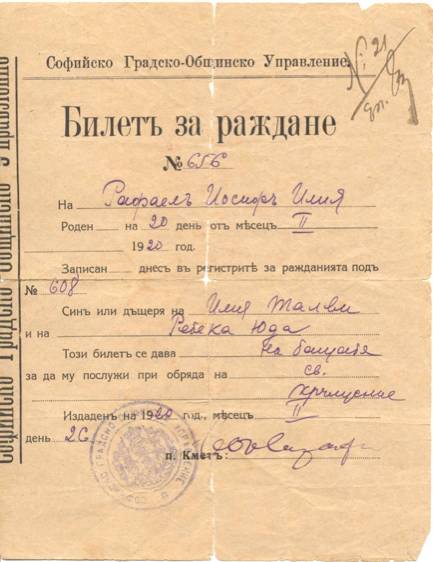 Софийско Градско-Общинско Управление.
№ 21
Билетъ за раждане
№ 656
На Рафаелъ Иосифъ Илия
Роден на 20 день отъ мѣсецъ II
1920 год.
Записан днесъ въ регистритѣ за ражданията подъ
№ 608
Синъ или дъщеря на Илия Талви
и на Ребека Юда
Този билетъ се дава на бащата
за да му послужи при обряда на св.
кръщение
Издаденъ на 1920 год., мѣсецъ II
день 26
п. Кметъ:
Софийско Градско-Общинско Управление